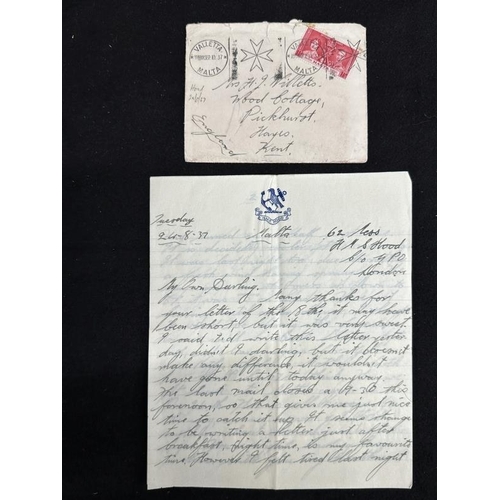 VALLETTA
MALTA
VALLETTA
MALTA
Mrs H. J. Willetts
Wood Cottage,
Pickhurst,
Hayes,
Kent.
England
Tuesday
24-8-37
Malta
62 Mess
H.M.S Hood
c/o G.P.O
London
My Own Darling,
Many thanks for
your letter of the 18th, it may have
been short, but it was very sweet.
I said I'd write this letter yester
day, didn't I darling, but it doesn't
make any difference, it wouldn't
have gone until today anyway.
The Hood mail closes a 09-30 this
forenoon, so that gives me just nice
time to catch it up. It seems strange
to be writing a letter just after
breakfast. Night time, is my favourite
time. However I felt tired last night